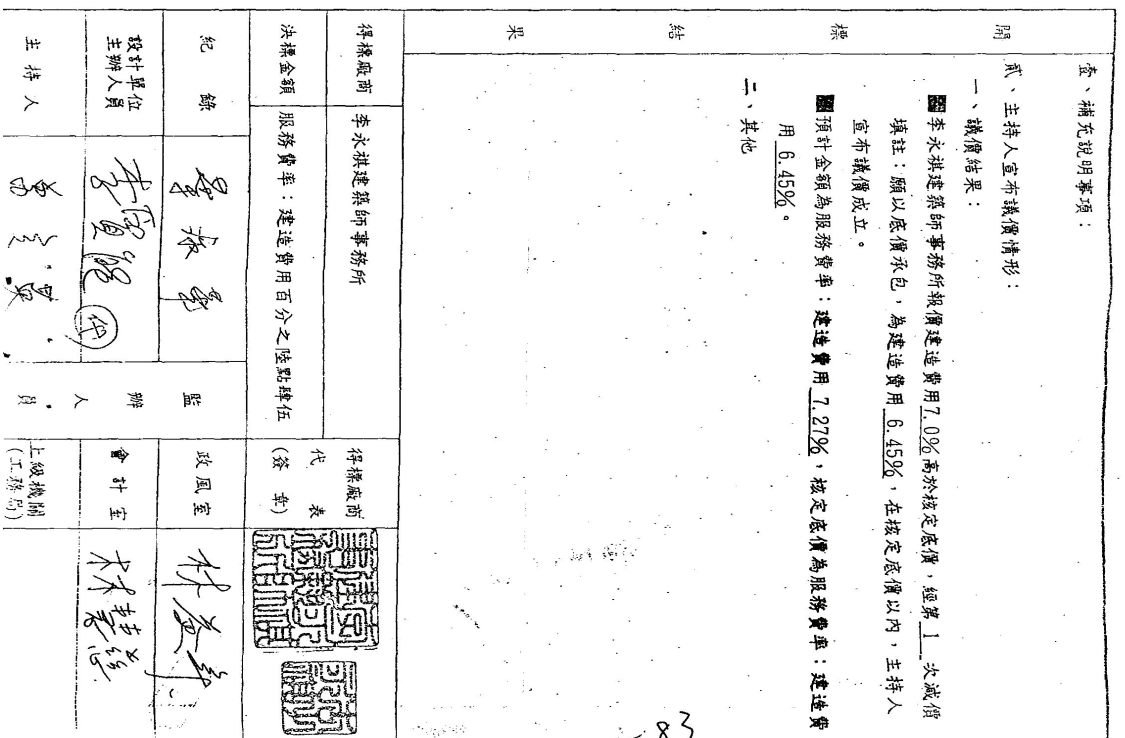 開標結果
壹、補充說明事項：
貳、主持人宣布議價情形：
一、議價結果：
李永祺建築師事務所報價建造費用7.0%高於核定底價，經第 1 次減價
填註：願以底價承包，為建造費用 6.45%，在核定底價以內，主持人
宣布議價成立。
預計金額為服務費率：建造費用 7.27%，核定底價為服務費率：建造費
用 6.45%。
二、其他
得標廠商
李永祺建築師事務所
得標廠商
代表
(簽章)
決標金額
服務費率：建造費用百分之陸點肆伍
紀錄
設計單位
主辦人員
主持人
監辦人員
政風室
會計室
林慧慈
上級機關
(工務局)
83